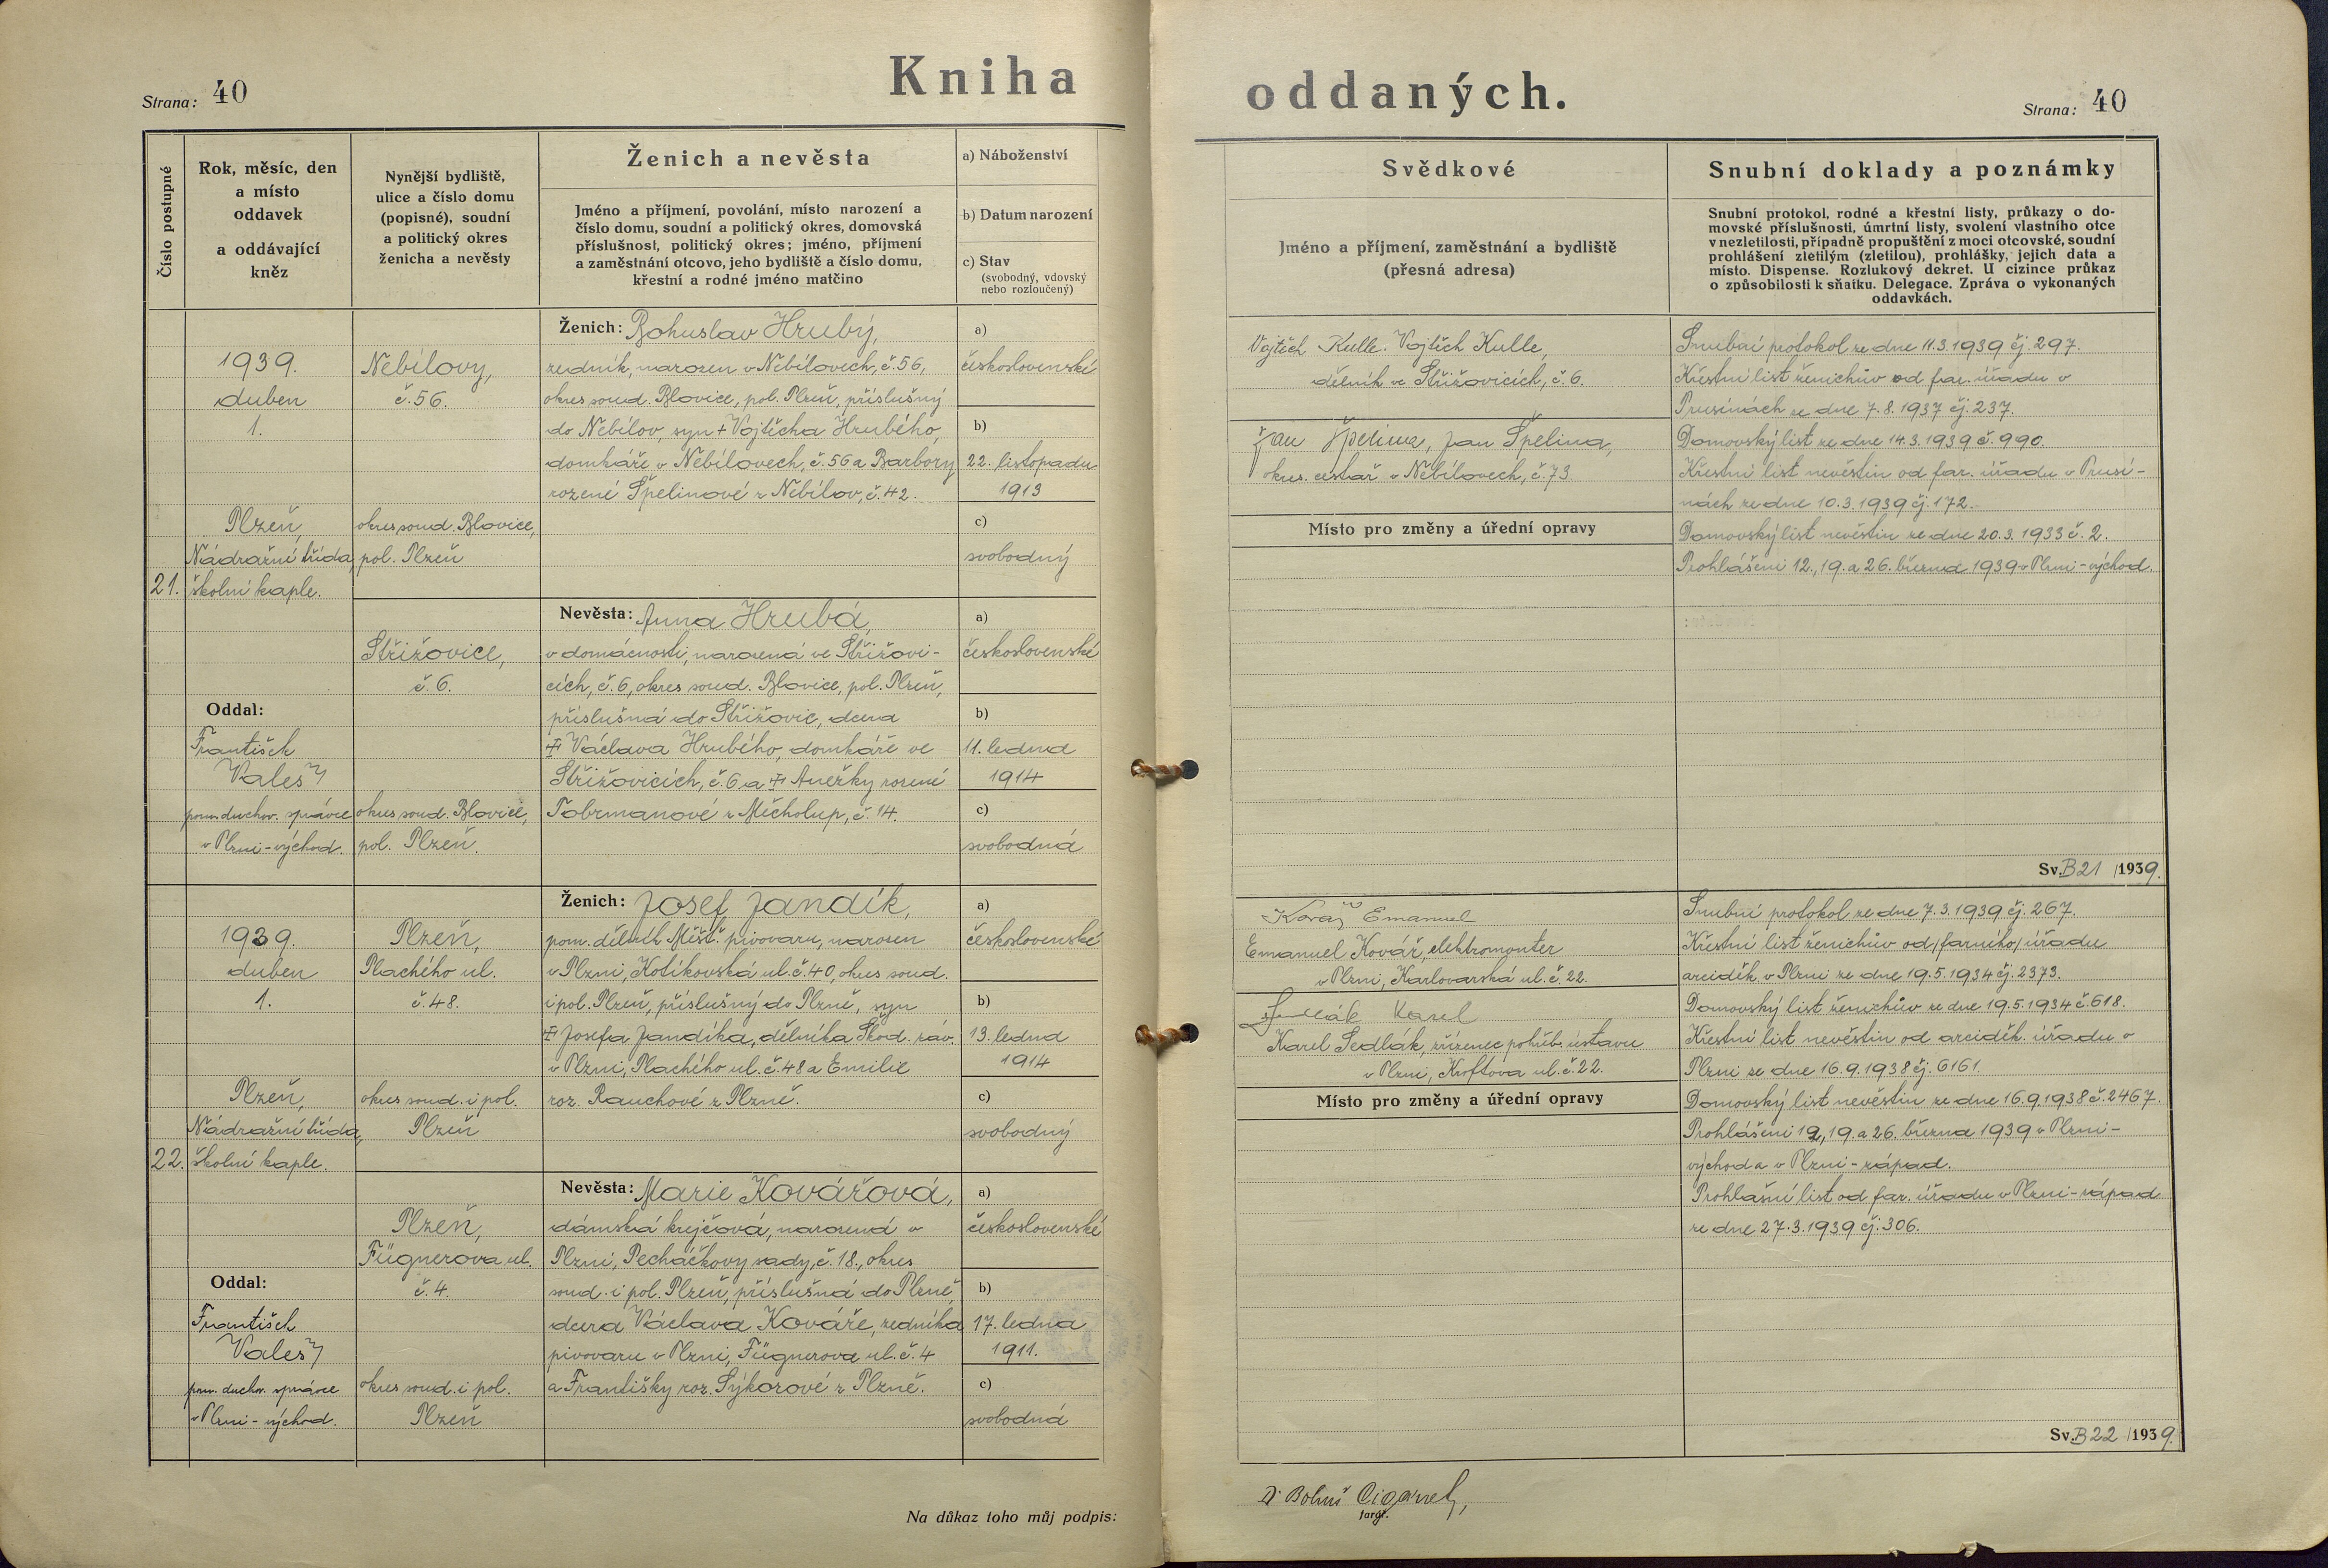 Strana: 40
Kniha
Číslo postupné
Rok, měsíc, den
a místo
oddavek
a oddávající
kněz
Nynější bydliště,
ulice a číslo domu
(popisné), soudní
a politický okres
ženicha a nevěsty
Ženich a nevěsta
Jméno a příjmení, povolání, místo narození a
číslo domu, soudní a politický okres, domovská
příslušnost, politický okres; jméno, příjmení
a zaměstnání otcovo, jeho bydliště a číslo domu,
křestní a rodné jméno matčino
a) Náboženství
b) Datum narození
c) Stav
(svobodný, vdovský
nebo rozloučený)
21.
1939.
duben
1.
Plzeň,
Nádražní třída,
školní kaple.
Oddal:
František
Valeš
pom. duchov. správce
v Plzni-východ.
Nebílovy,
č. 56.
okres soud. Blovice,
pol. Plzeň
Střížovice,
č. 6.
okres soud. Blovice,
pol. Plzeň.
Ženich: Bohuslav Hrubý,
zedník, narozen v Nebílovech, č. 56,
okres soud. Blovice, pol. Plzeň, příslušný
do Nebílov, syn + Vojtěcha Hrubého,
domkáře v Nebílovech, č. 56 a Barbory
rozené Špelinové z Nebílov, č. 42.
a)
československé
b)
22. listopadu
1913
c)
svobodný
Nevěsta: Anna Hrubá,
v domácnosti, narozená ve Střížovi-
cích, č. 6, okres soud. Blovice, pol. Plzeň,
příslušná do Střížovic, dcera
+ Václava Hrubého, domkáře ve
Střížovicích, č. 6 a + Anežky rozené
Tobrmanové z Měcholup, č. 14.
a)
československé
b)
11. ledna
1914
c)
svobodná
22.
1939.
duben
1.
Plzeň,
Nádražní třída,
školní kaple.
Oddal:
František
Valeš
pom. duchov. správce
v Plzni-východ.
Plzeň,
Plachého ul.
č. 48.
okres soud. i pol.
Plzeň
Plzeň,
Fügnerova ul.
č. 4.
okres soud. i pol.
Plzeň
Ženich: Josef Jandík,
pom. dělník Měšť. pivovaru, narozen
v Plzni, Kotíkovská ul. č. 40, okres soud.
i pol. Plzeň, příslušný do Plzně, syn
+ Josefa Jandíka, dělníka Škod. záv.
v Plzni, Plachého ul. č. 48 a Emilie
roz. Rauchové z Plzně.
a)
československé
b)
13. ledna
1914
c)
svobodný
Nevěsta: Marie Kovářová,
dámská krejčová, narozená v
Plzni, Pecháčkovy sady, č. 18., okres
soud. i pol. Plzeň, příslušná do Plzně,
dcera Václava Kováře, zedníka
pivovaru v Plzni, Fügnerova ul. č. 4
a Františky roz. Sýkorové z Plzně.
a)
československé
b)
17. ledna
1911.
c)
svobodná
Na důkaz toho můj podpis:
oddaných.
Strana: 40
Svědkové
Jméno a příjmení, zaměstnání a bydliště
(přesná adresa)
Snubní doklady a poznámky
Snubní protokol, rodné a křestní listy, průkazy o do-
movské příslušnosti, úmrtní listy, svolení vlastního otce
v nezletilosti, případně propuštění z moci otcovské, soudní
prohlášení zletilým (zletilou), prohlášky, jejich data a
místo. Dispense. Rozlukový dekret. U cizince průkaz
o způsobilosti k sňatku. Delegace. Zpráva o vykonaných
oddavkách.
Vojtěch Kulle. Vojtěch Kulle,
dělník ve Střížovicích, č. 6.
Jan Špelina, Jan Špelina,
okres. cestář v Nebílovech, č. 73.
Místo pro změny a úřední opravy
Snubní protokol ze dne 11.3.1939 čj. 297.
Křestní list ženichův od far. úřadu v
Prusinách ze dne 7.8.1937 čj. 237.
Domovský list ze dne 14.3.1939 č. 990.
Křestní list nevěstin od far. úřadu v Prusi-
nách ze dne 10.3.1939 čj. 172.
Domovský list nevěstin ze dne 20.3.1933 č. 2.
Prohlášeni 12., 19. a 26. března 1939 v Plzni-východ.
Sv. B21 /1939.
Kovář Emanuel
Emanuel Kovář, elektromonter
v Plzni, Karlovarská ul. č. 22.
Sedlák Karel
Karel Sedlák, zřízenec pohřeb. ústavu
v Plzni, Kroftova ul. č. 22.
Místo pro změny a úřední opravy
Snubní protokol ze dne 7.3.1939 čj. 267.
Křestní list ženichův od /farního/ úřadu
arciděk. v Plzni ze dne 19.5.1934 čj. 2373.
Domovský list ženichův ze dne 19.5.1934 č. 618.
Křestní list nevěstin od arciděk. úřadu v
Plzni ze dne 16.9.1938 čj. 6161.
Domovský list nevěstin ze dne 16.9.1938 č. 2467.
Prohlášeni 12., 19. a 26. března 1939 v Plzni-
východ a v Plzni-západ.
Prohlašní list od far. úřadu v Plzni-západ
ze dne 27.3.1939 čj. 306.
Sv. B22 /1939.
Bohuš
farář.